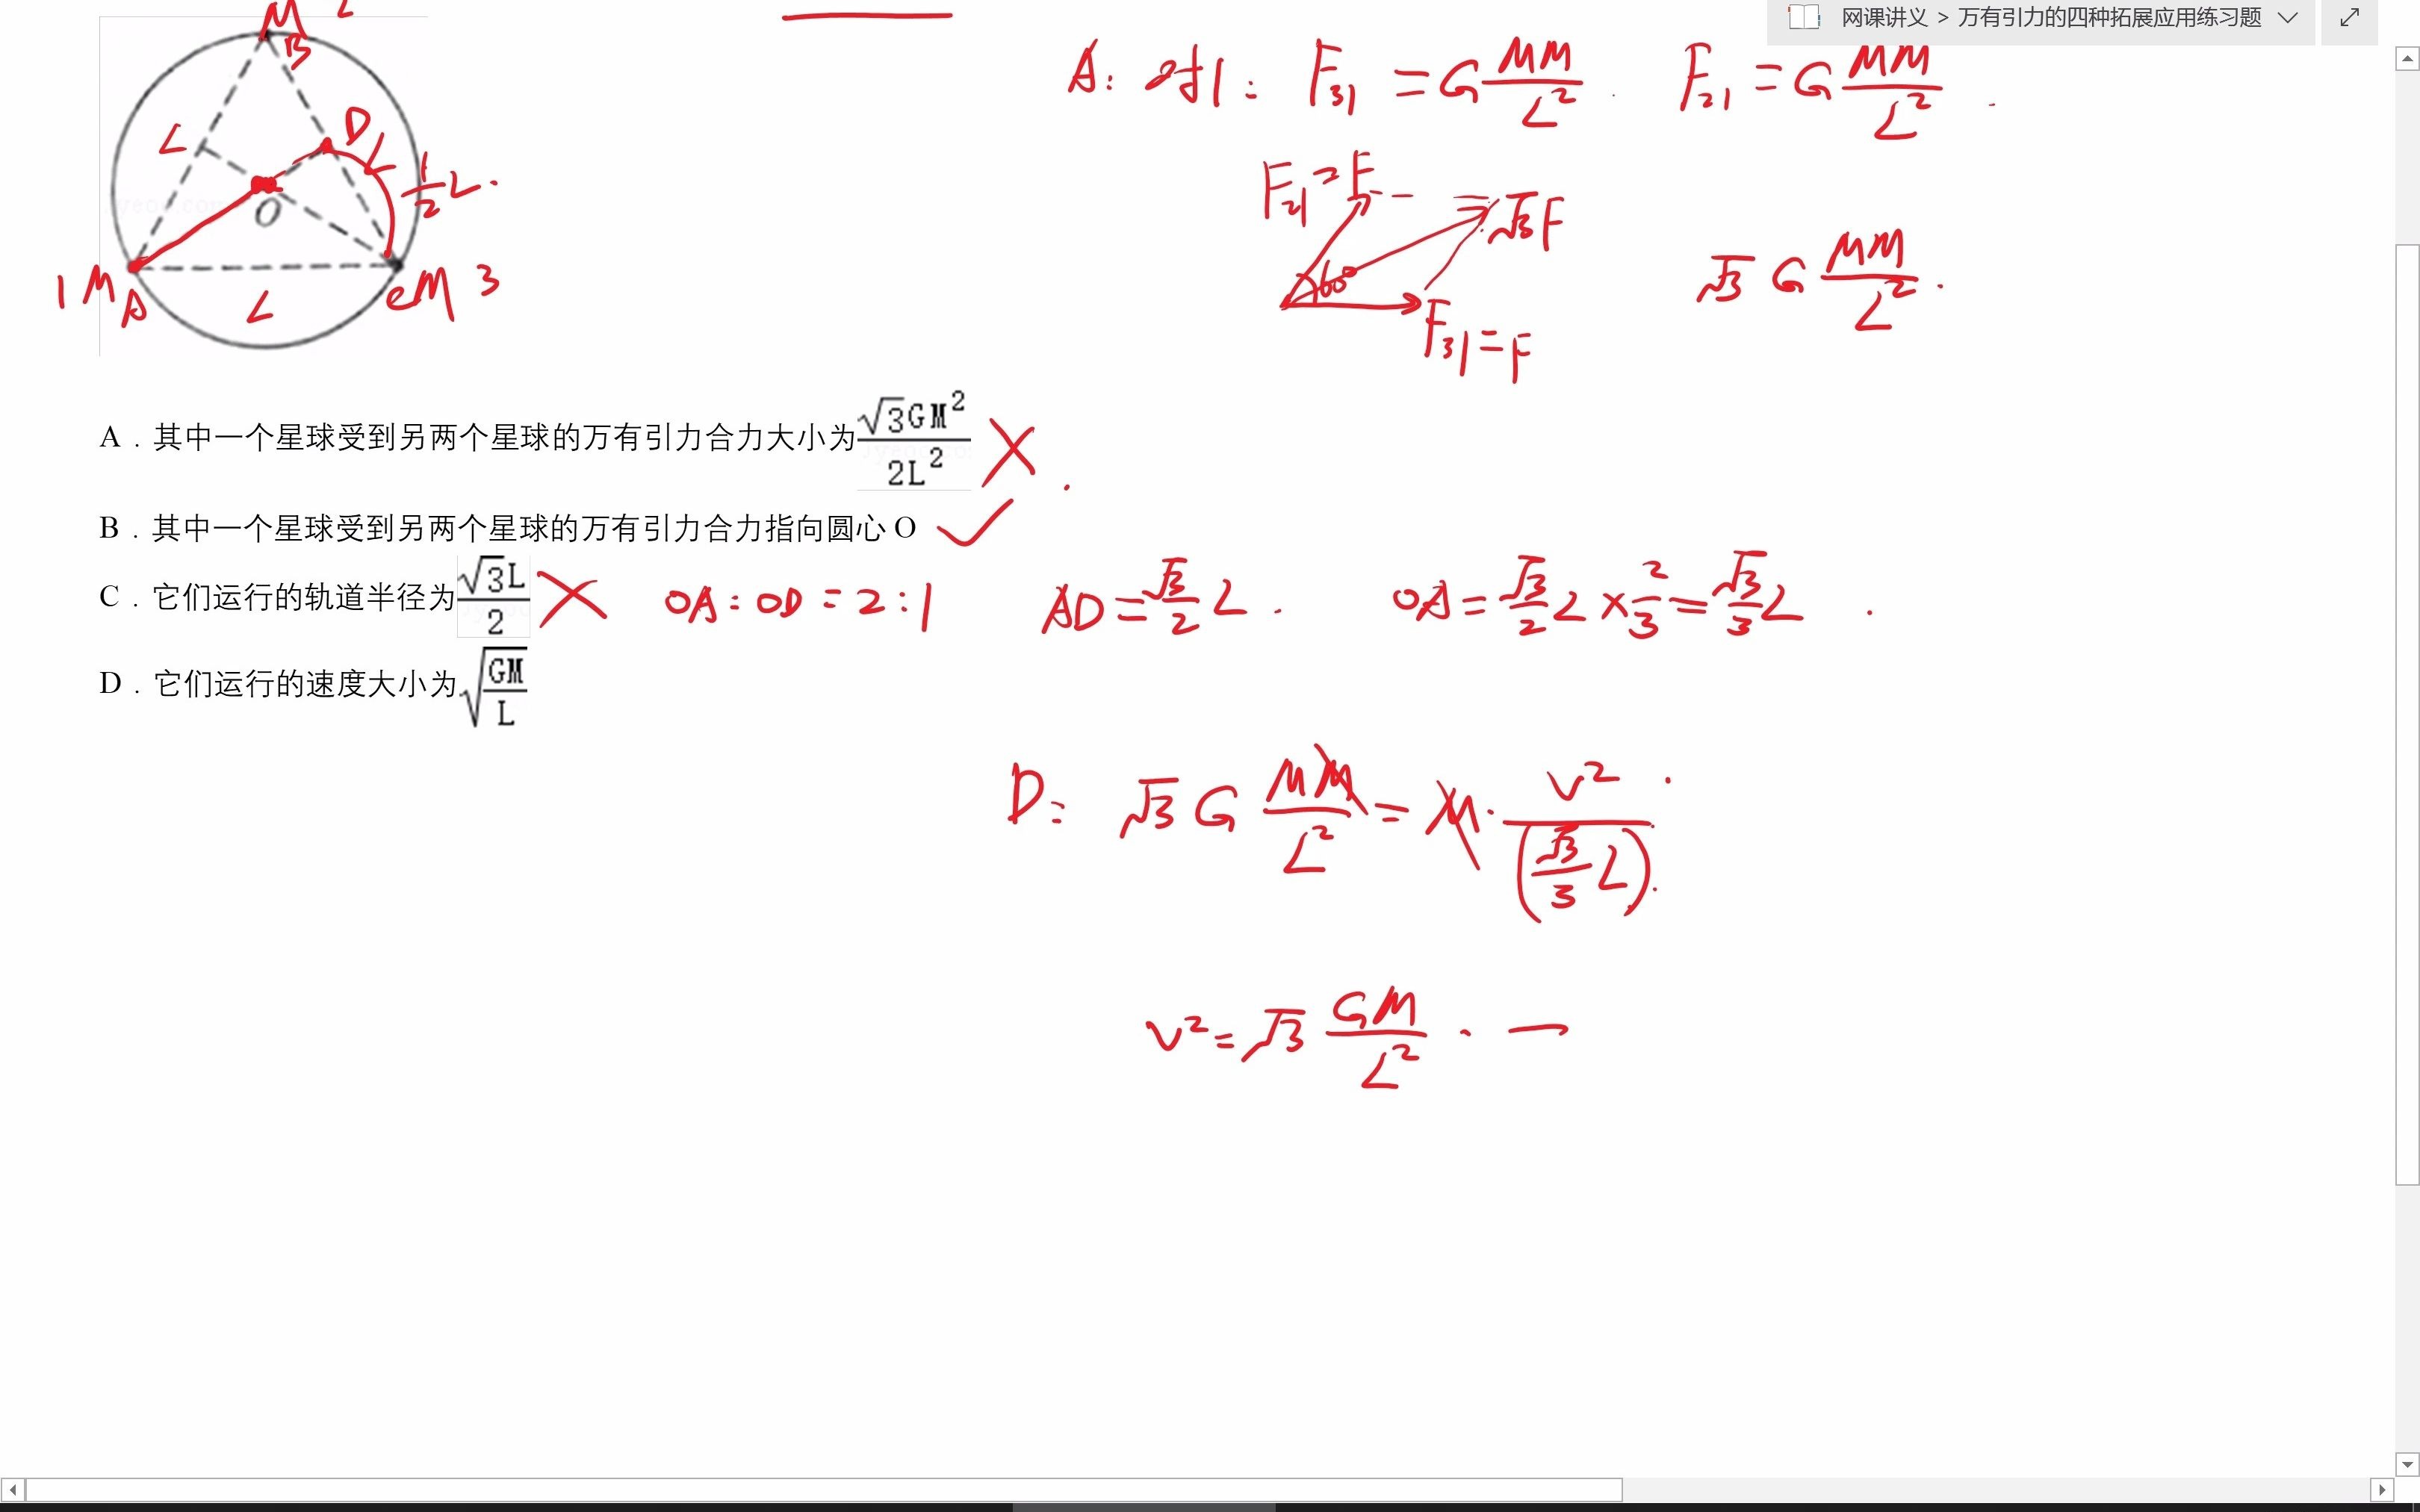 网课讲义 > 万有引力的四种拓展应用练习题
M 2
B
L
D
1/2 L
O
1 M A
L
C M 3
A: 对1: F₃₁ = G MM/L² . F₂₁ = G MM/L² .
F₂₁ = F
√3F
60°
F₃₁ = F
√3 G MM/L² .
A．其中一个星球受到另两个星球的万有引力合力大小为 √3GM²/2L² ×
B．其中一个星球受到另两个星球的万有引力合力指向圆心 O ✓
C．它们运行的轨道半径为 √3L/2 × OA : OD = 2 : 1 AD = √3/2 L . OA = √3/2 L × 2/3 = √3/3 L .
D．它们运行的速度大小为 √(GM/L)
D: √3 G MM/L² = M · v²/(√3/3 L) .
v² = √3 GM/L² · —